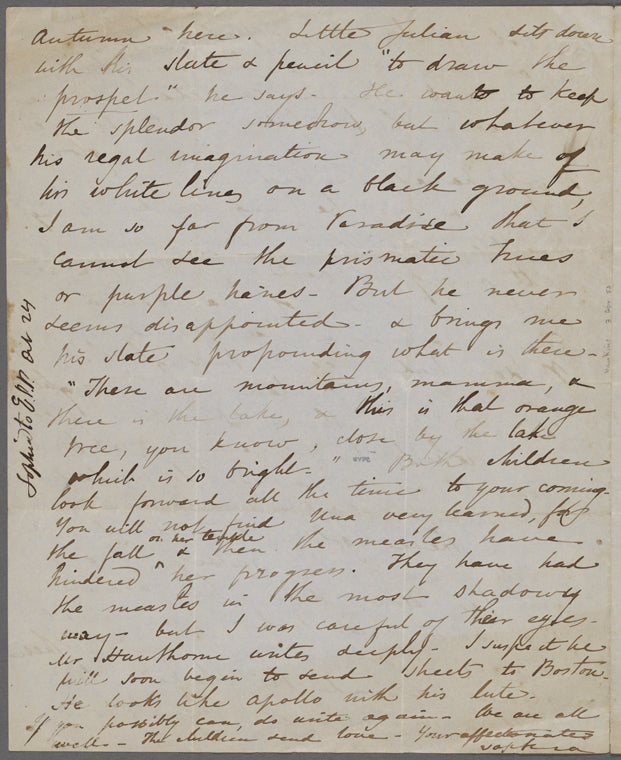 Autumn here. Little Julian sits down
with his slate & pencil "to draw the
prospet." he says - He wants to keep
the splendor somehow, but whatever
his regal imagination may make of
his white lines on a black ground,
I am so far from Paradise that I
cannot see the prismatic trees
or purple hazes - But he never
seems disappointed - & brings me
his slate propounding what is there -
"There are mountains, mamma, &
there is the lake, & this is that orange
tree, you know, close by the lake
which is so bright - " Both children
look forward all the time to your coming -
You will not find Una very learned, for
the fall on her temple & then the measles have
hindered her progress. They have had
the measles in the most shadowy
way - but I was careful of their eyes -
Mr Hawthorne writes deeply - I suspect he
will soon begin to send sheets to Boston -
He looks like Apollo with his lute -
If you possibly can, do write again - We are all
well - The children send love - Your affectionate
Sophia
Sophia to E.P.P. Oct 24
NYPL